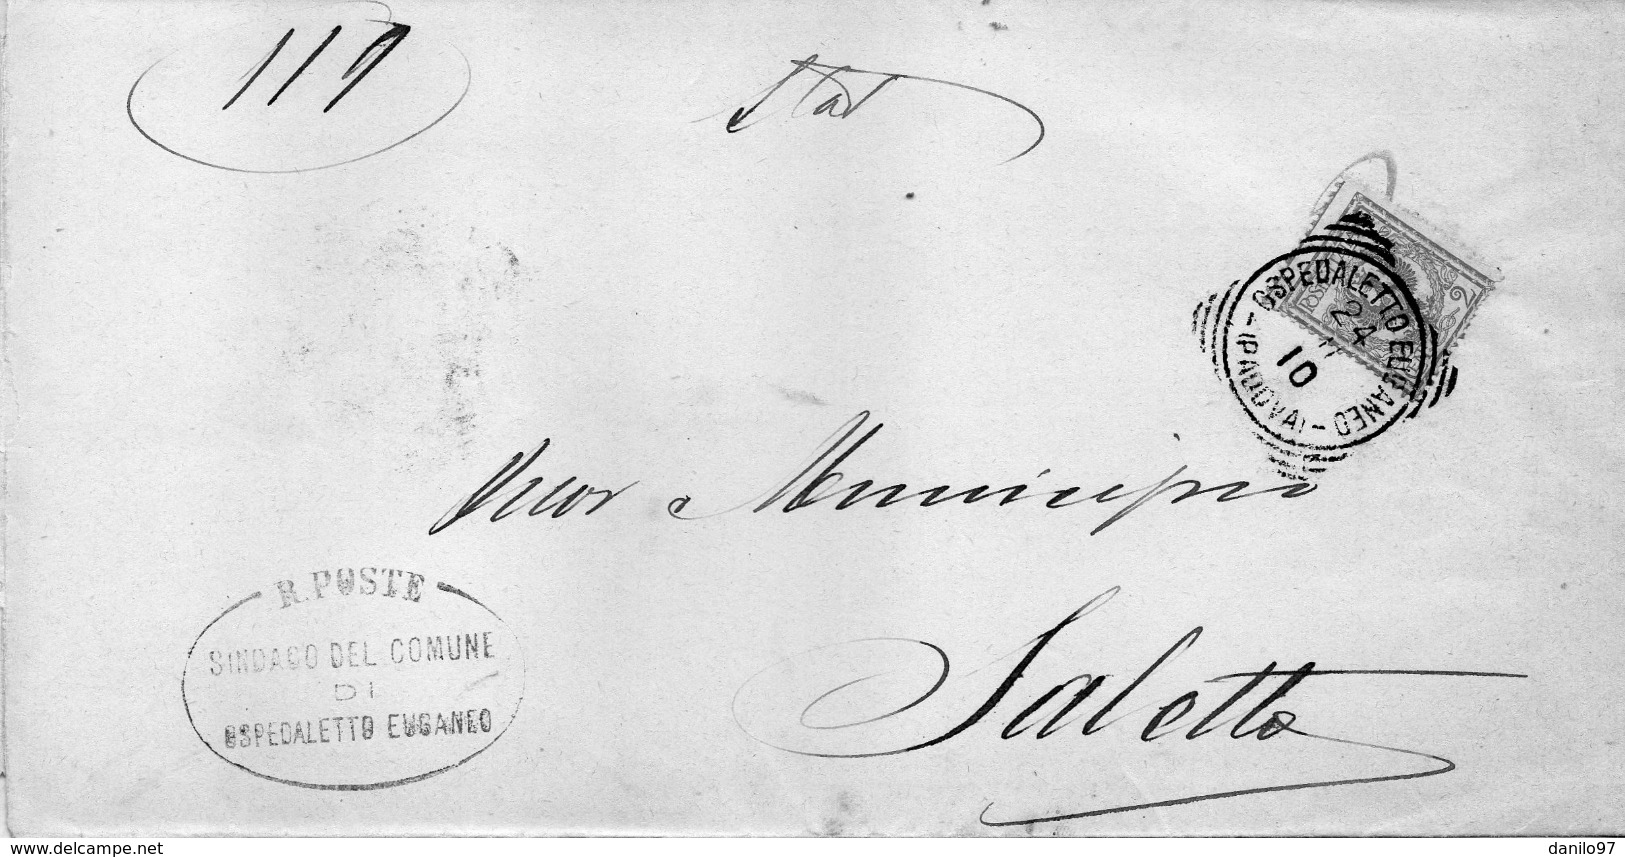 119
OSPEDALETTO EUGANEO
(PADOVA)
24
10
POST
2
Municipio
Saletto
R. POSTE
SINDACO DEL COMUNE
DI
OSPEDALETTO EUGANEO
www.delcampe.net
danilo97